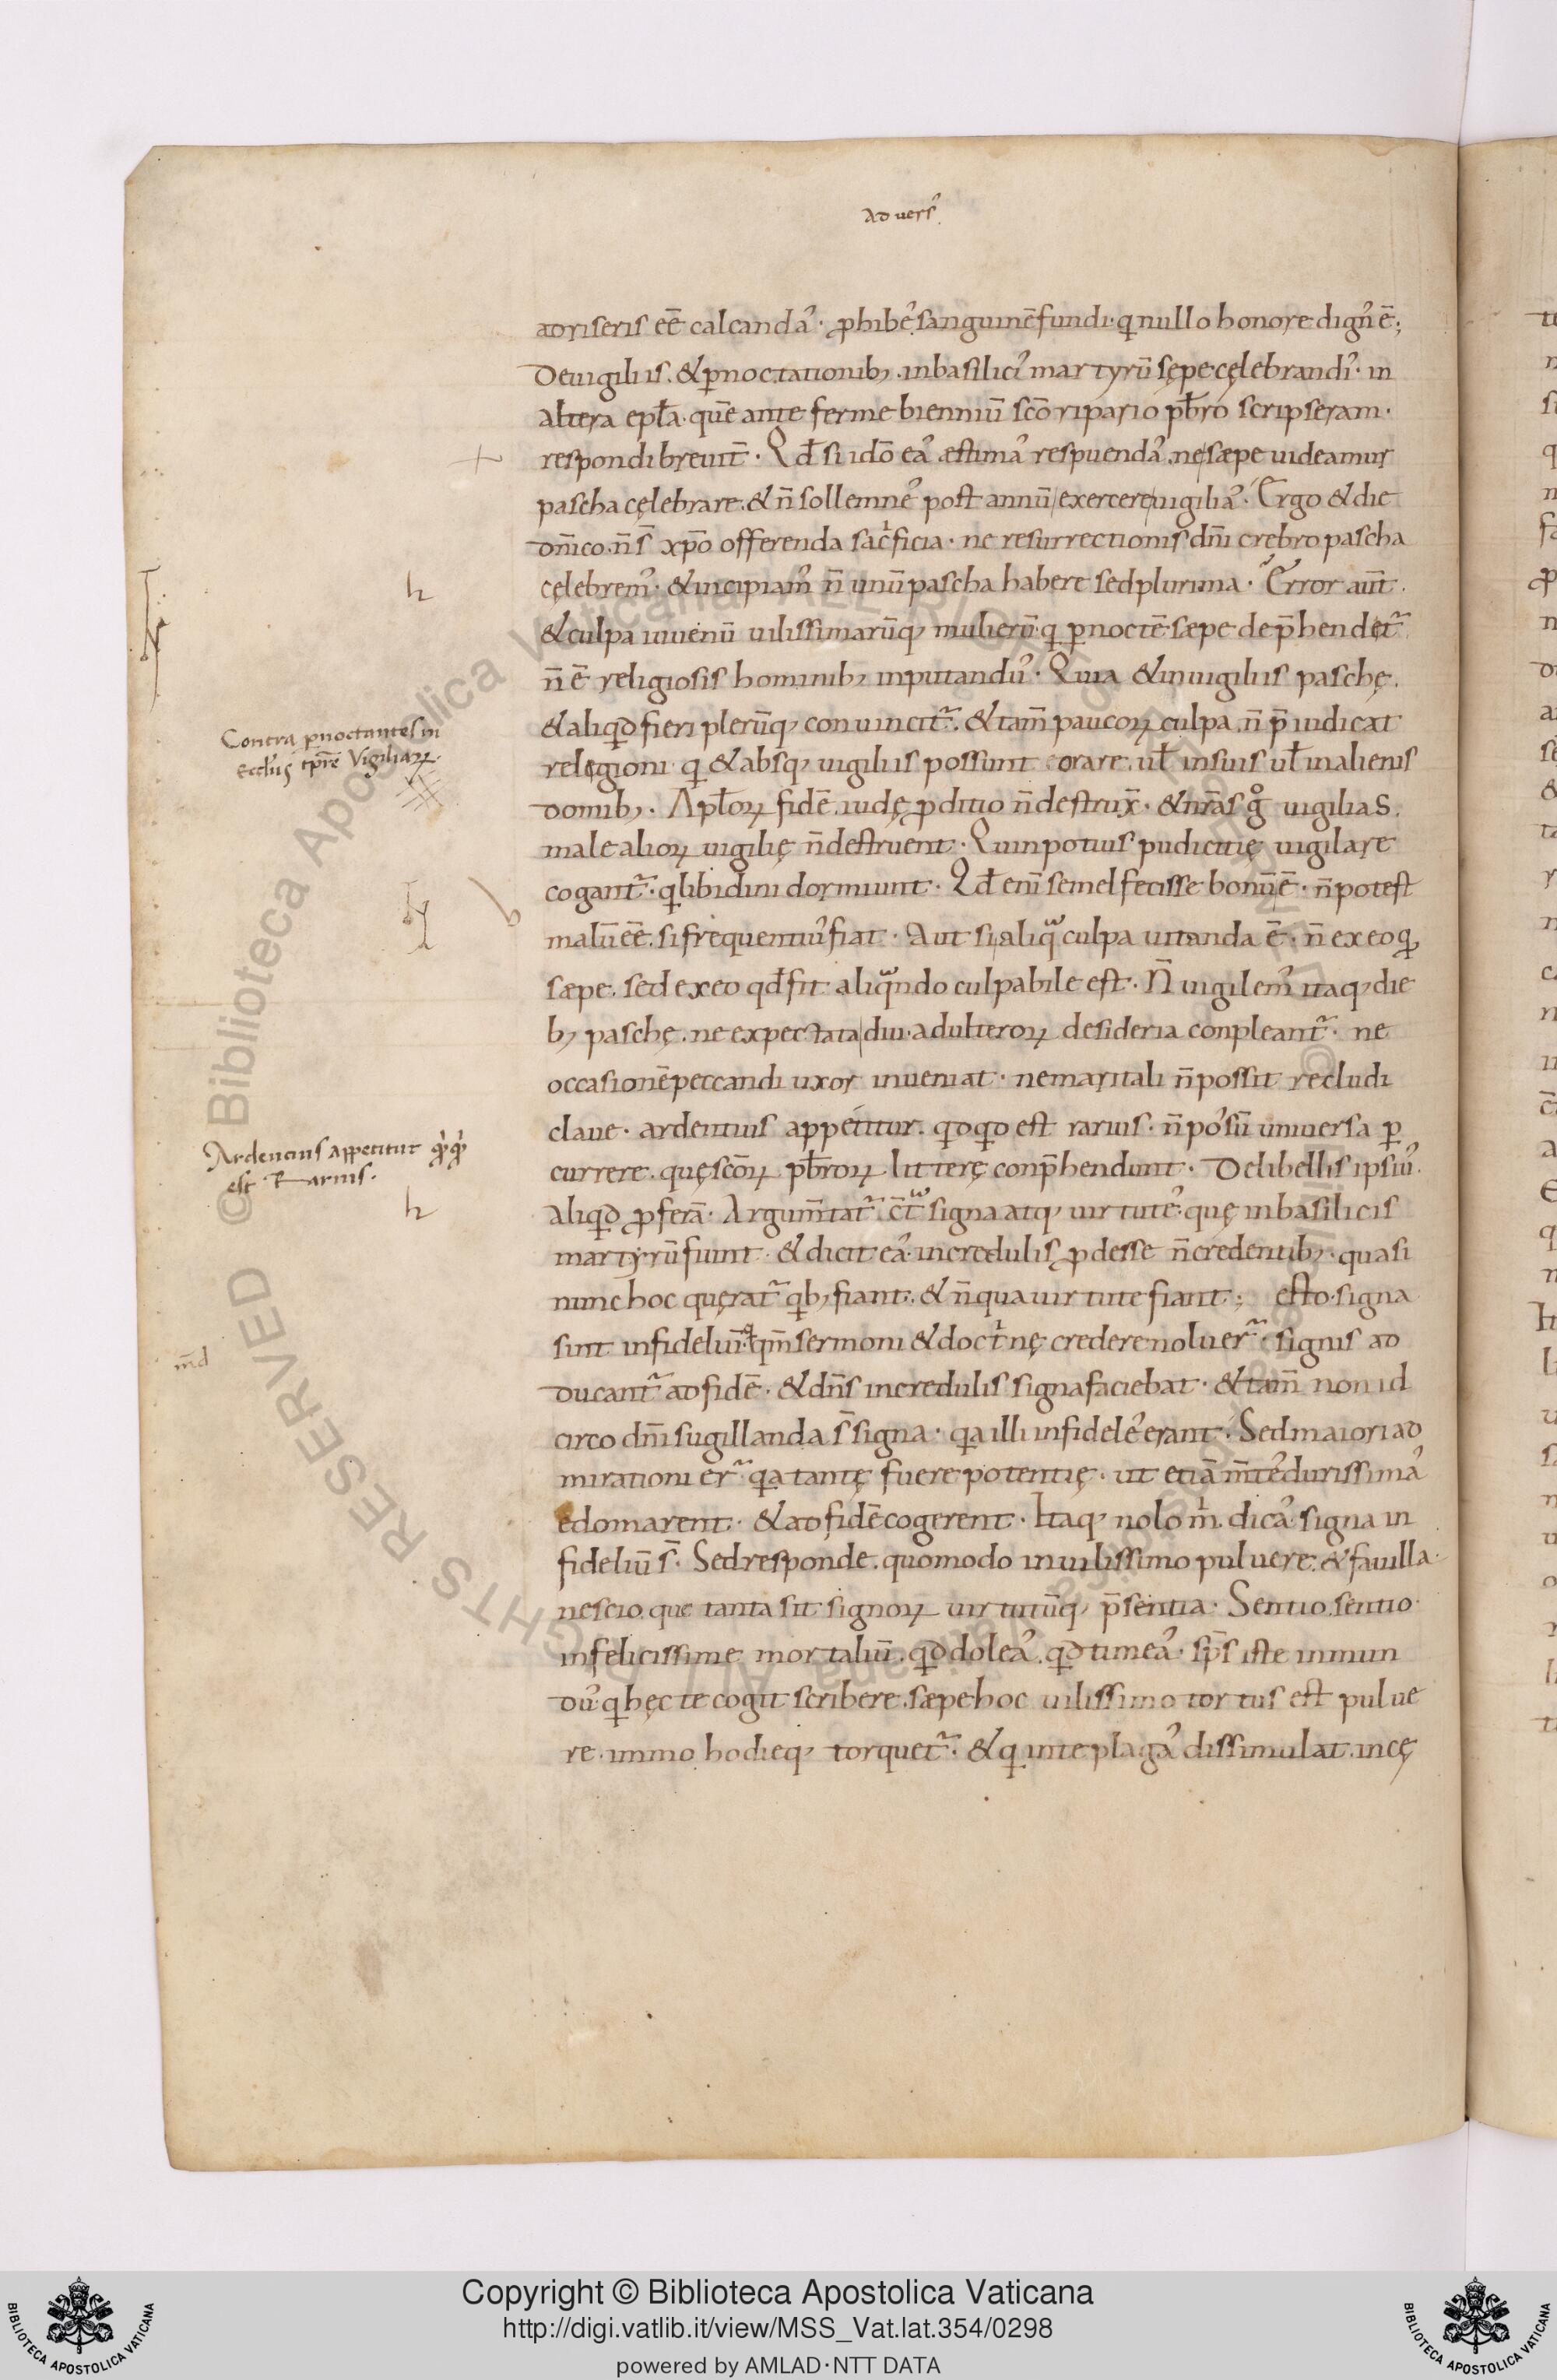 adversꝰ
adriseris eē calcandaꝰ. ꝓhibeꝰ sanguinē fundi. qi nullo honore dignꝰ ē;
De uigiliis. & p̱noctationib; in basiliciꝰ martyrū sępe cęlebrandiꝰ. in
altera epła. quē ante ferme bienniū scō ripario pb̄ro scripseram.
respondi breuit̄. Qđ si idō eaꝰ æstimaꝰ respuendaꝰ. ne sæpe uideamur
pascha cęlebrare. & n̄ sollemneꝰ post annū exercere uigiliaꝰ. Ergo & die
dn̄ico. n̄ s̄ xp̄o offerenda sacͥficia. ne resurrectionis dn̄i crebro pascha
cęlebremꝰ. & incipiamꝰ n̄ unū pascha habere sed plurima. Error aut̄.
& culpa iuuenū uilissimarūq; mulierū. qi p̱ noctē sæpe dep̄hendet᷑
n̄ ē religiosis hominib; inputanduꝰ. Quia & in uigiliis paschę.
& aliqid fieri plerūq; conuincit᷑. & tam̄ paucoꝝ culpa. n̄ p̄iudicat
religioni. qi & absq; uigiliis possunt orare. uł in suis uł in alienis
domib;. Apłoꝝ fidē. iudę ꝓditio n̄ destrux̄. & nr̄as gͦ uigilias.
male alioꝝ uigilię n̄ destruent. Quin potius pudicitię uigilare
cogant᷑. qi libidini dormiunt. Qđ eni̅ semel fecisse bonū ē. n̄ potest
malū eē. si frequentiuꝰ fiat. Aut si aliqͣ culpa uitanda ē. n̄ ex eo qđ
sæpe. sed ex eo qđ fit aliqͣndo culpabile est. N̄ uigilemꝰ itaq; die
b; paschę. ne expectata diu adulteroꝝ desideria conpleant᷑. ne
occasionē peccandi uxor inueniat. ne maritali n̄ possit recludi
claue. ardentius appetitur. qidqid est rarius. n̄ poꝰsū uniuersa p̱
currere. quę scōꝝ pb̄roꝝ litterę conp̄hendunt. De libellis ipsiuꝰ.
aliqid ꝓferā. Argum̄tat᷑ c̄tͣ signa atq; uirtuteꝰ. quę in basilicis
martyrū fiunt. & dicit eaꝰ incredulis ꝓdesse n̄ credentib;. quasi
nunc hoc quęrat᷑ qib; fiant. & n̄ qua uirtute fiant; esto. signa
sint infideliū. qi qm̄ sermoni & doctͥnę credere noluer᷑. signis ad
ducant᷑ ad fidē. & dn̄s incredulis signa faciebat. & tam̄ non id
circo dn̄i sugillanda s̄ signa. qia illi infideleꝰ erant. Sed maiori ad
mirationi er᷑. qia tantę fuere potentię. ut etiā m̄teꝰ durissimaꝰ
edomarent. & ad fidē cogerent. Itaq; nolo mͥ. dicaꝰ signa in
fideliū s̄. Sed responde. quomodo in uilissimo puluere. & fauilla.
nescio que tanta sit signoꝝ uirtutūq; p̄sentia. Sentio. sentio.
infelicissime mortaliū. qid doleaꝰ. qid timeaꝰ. sp̄s iste inmun
duꝰ qi hęc te cogit scribere. sæpe hoc uilissimo tortus est pulue
re. immo hodieq; torquet᷑. & qi in te plagaꝰ dissimulat. in cę
h
Contra p̱noctantes in
Eccłijs tp̄re Vigiliaꝝ.
Ardencius appetitur qͥdqͥd
est Rarius.
h
m̄d
Copyright © Biblioteca Apostolica Vaticana
http://digi.vatlib.it/view/MSS_Vat.lat.354/0298
powered by AMLAD·NTT DATA
BIBLIOTECA APOSTOLICA VATICANA
BIBLIOTECA APOSTOLICA VATICANA